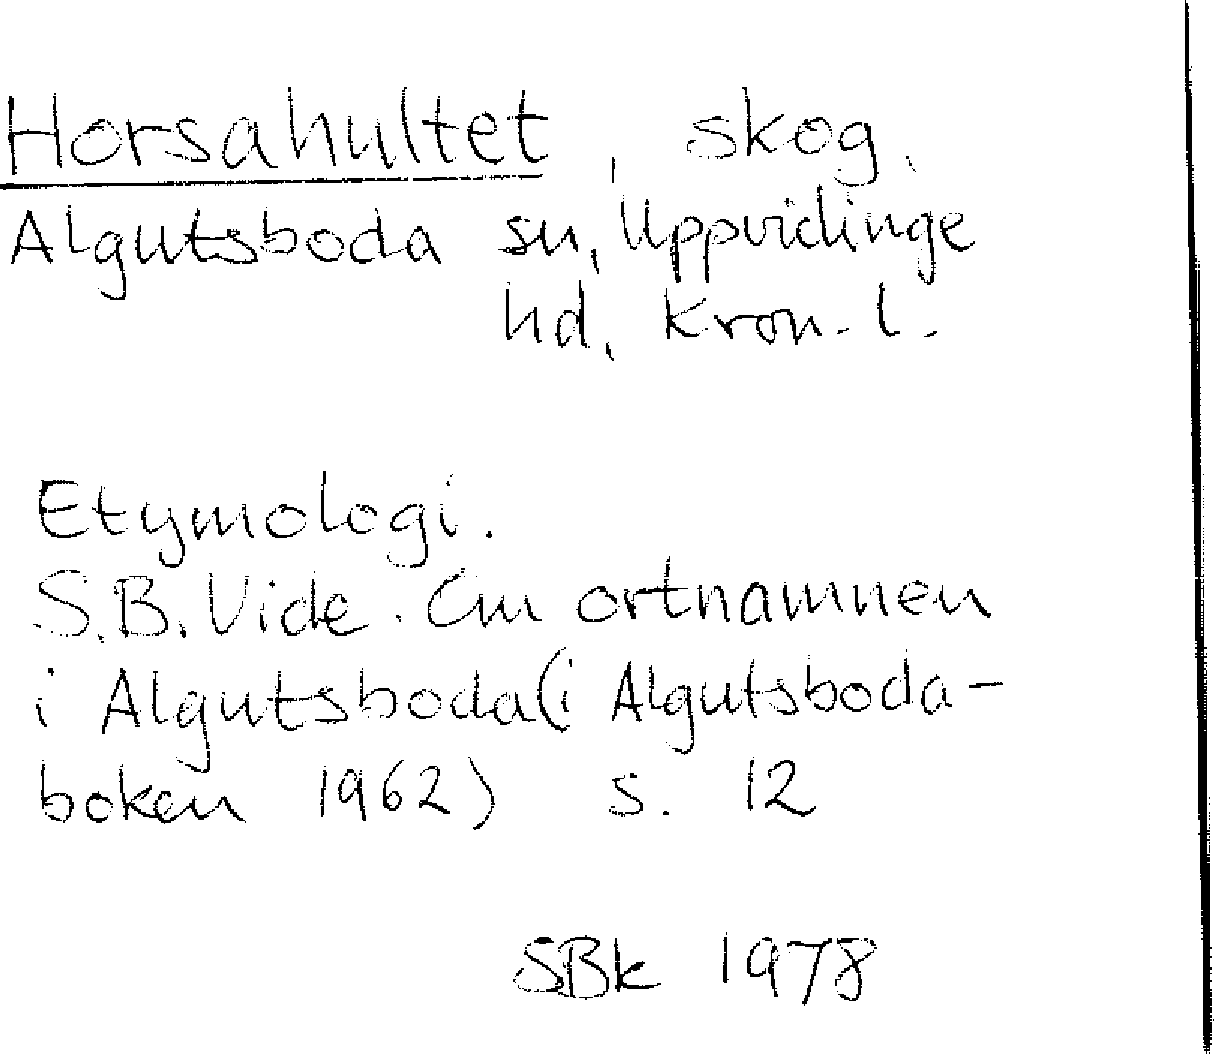 Horsahultet, skog,
Algutsboda sn, Uppvidinge
hd, Kron. l.
Etymologi.
S.B. Vide. Om ortnamnen
i Algutsboda (i Algutsboda-
boken 1962) s. 12
SBk 1978